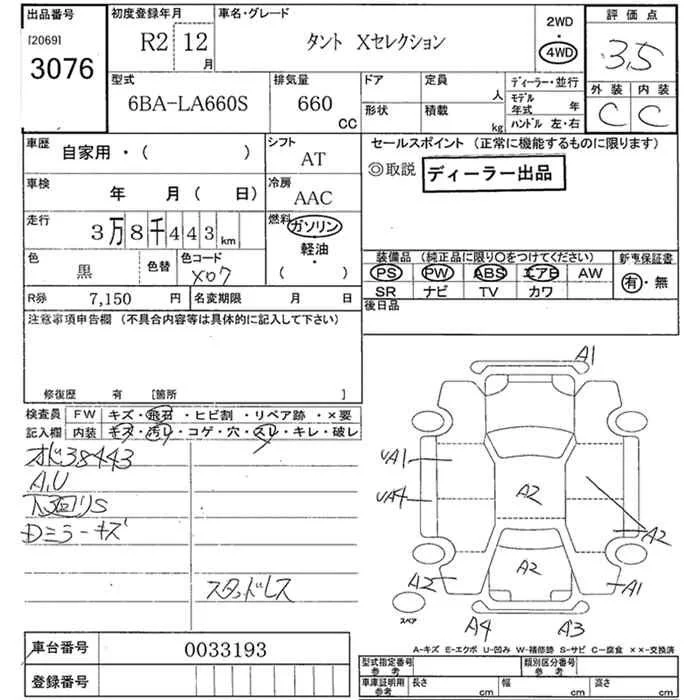 出品番号
[2069]
3076
初度登録年月
R2 12 月
車名・グレード
タント Xセレクション
2WD
・
4WD
評価点
3.5
外装 内装
C C
型式
6BA-LA660S
排気量
660 CC
ドア
形状
定員 人
積載 kg
ディーラー・並行
モデル年式 年
ハンドル 左・右
車歴
自家用・( )
シフト
AT
車検
年 月( 日)
冷房
AAC
走行
3万8千443km
燃料
ガソリン
軽油
・
( )
色
黒
色替
色コード
X07
R券 7,150 円
名変期限 月 日
セールスポイント (正常に機能するものに限ります)
◎取説 ディーラー出品
装備品 (純正品に限り○をつけてください)
PS PW ABS エアB AW
SR ナビ TV カワ
新車保証書
有・無
後日品
注意事項申告欄 (不具合内容等は具体的に記入して下さい)
修復歴 有 [箇所 ]
検査員
記入欄
FW キズ・飛石・ヒビ割・リペア跡・×要
内装 キズ・汚レ・コゲ・穴・スレ・キレ・破レ
オド38443
A,U
下回りS
Dミラーキズ
スタッドレス
A1
UA1
UA4
A2
A2
A2
A2
A1
A4
A3
スペア
A-キズ E-エクボ U-凹み W-補修跡 S-サビ C-腐食 ××-交換済
車台番号 0033193
登録番号
型式指定番号
参考
類別区分番号
参考
車庫証明用
参考
長さ cm
幅 cm
高さ cm